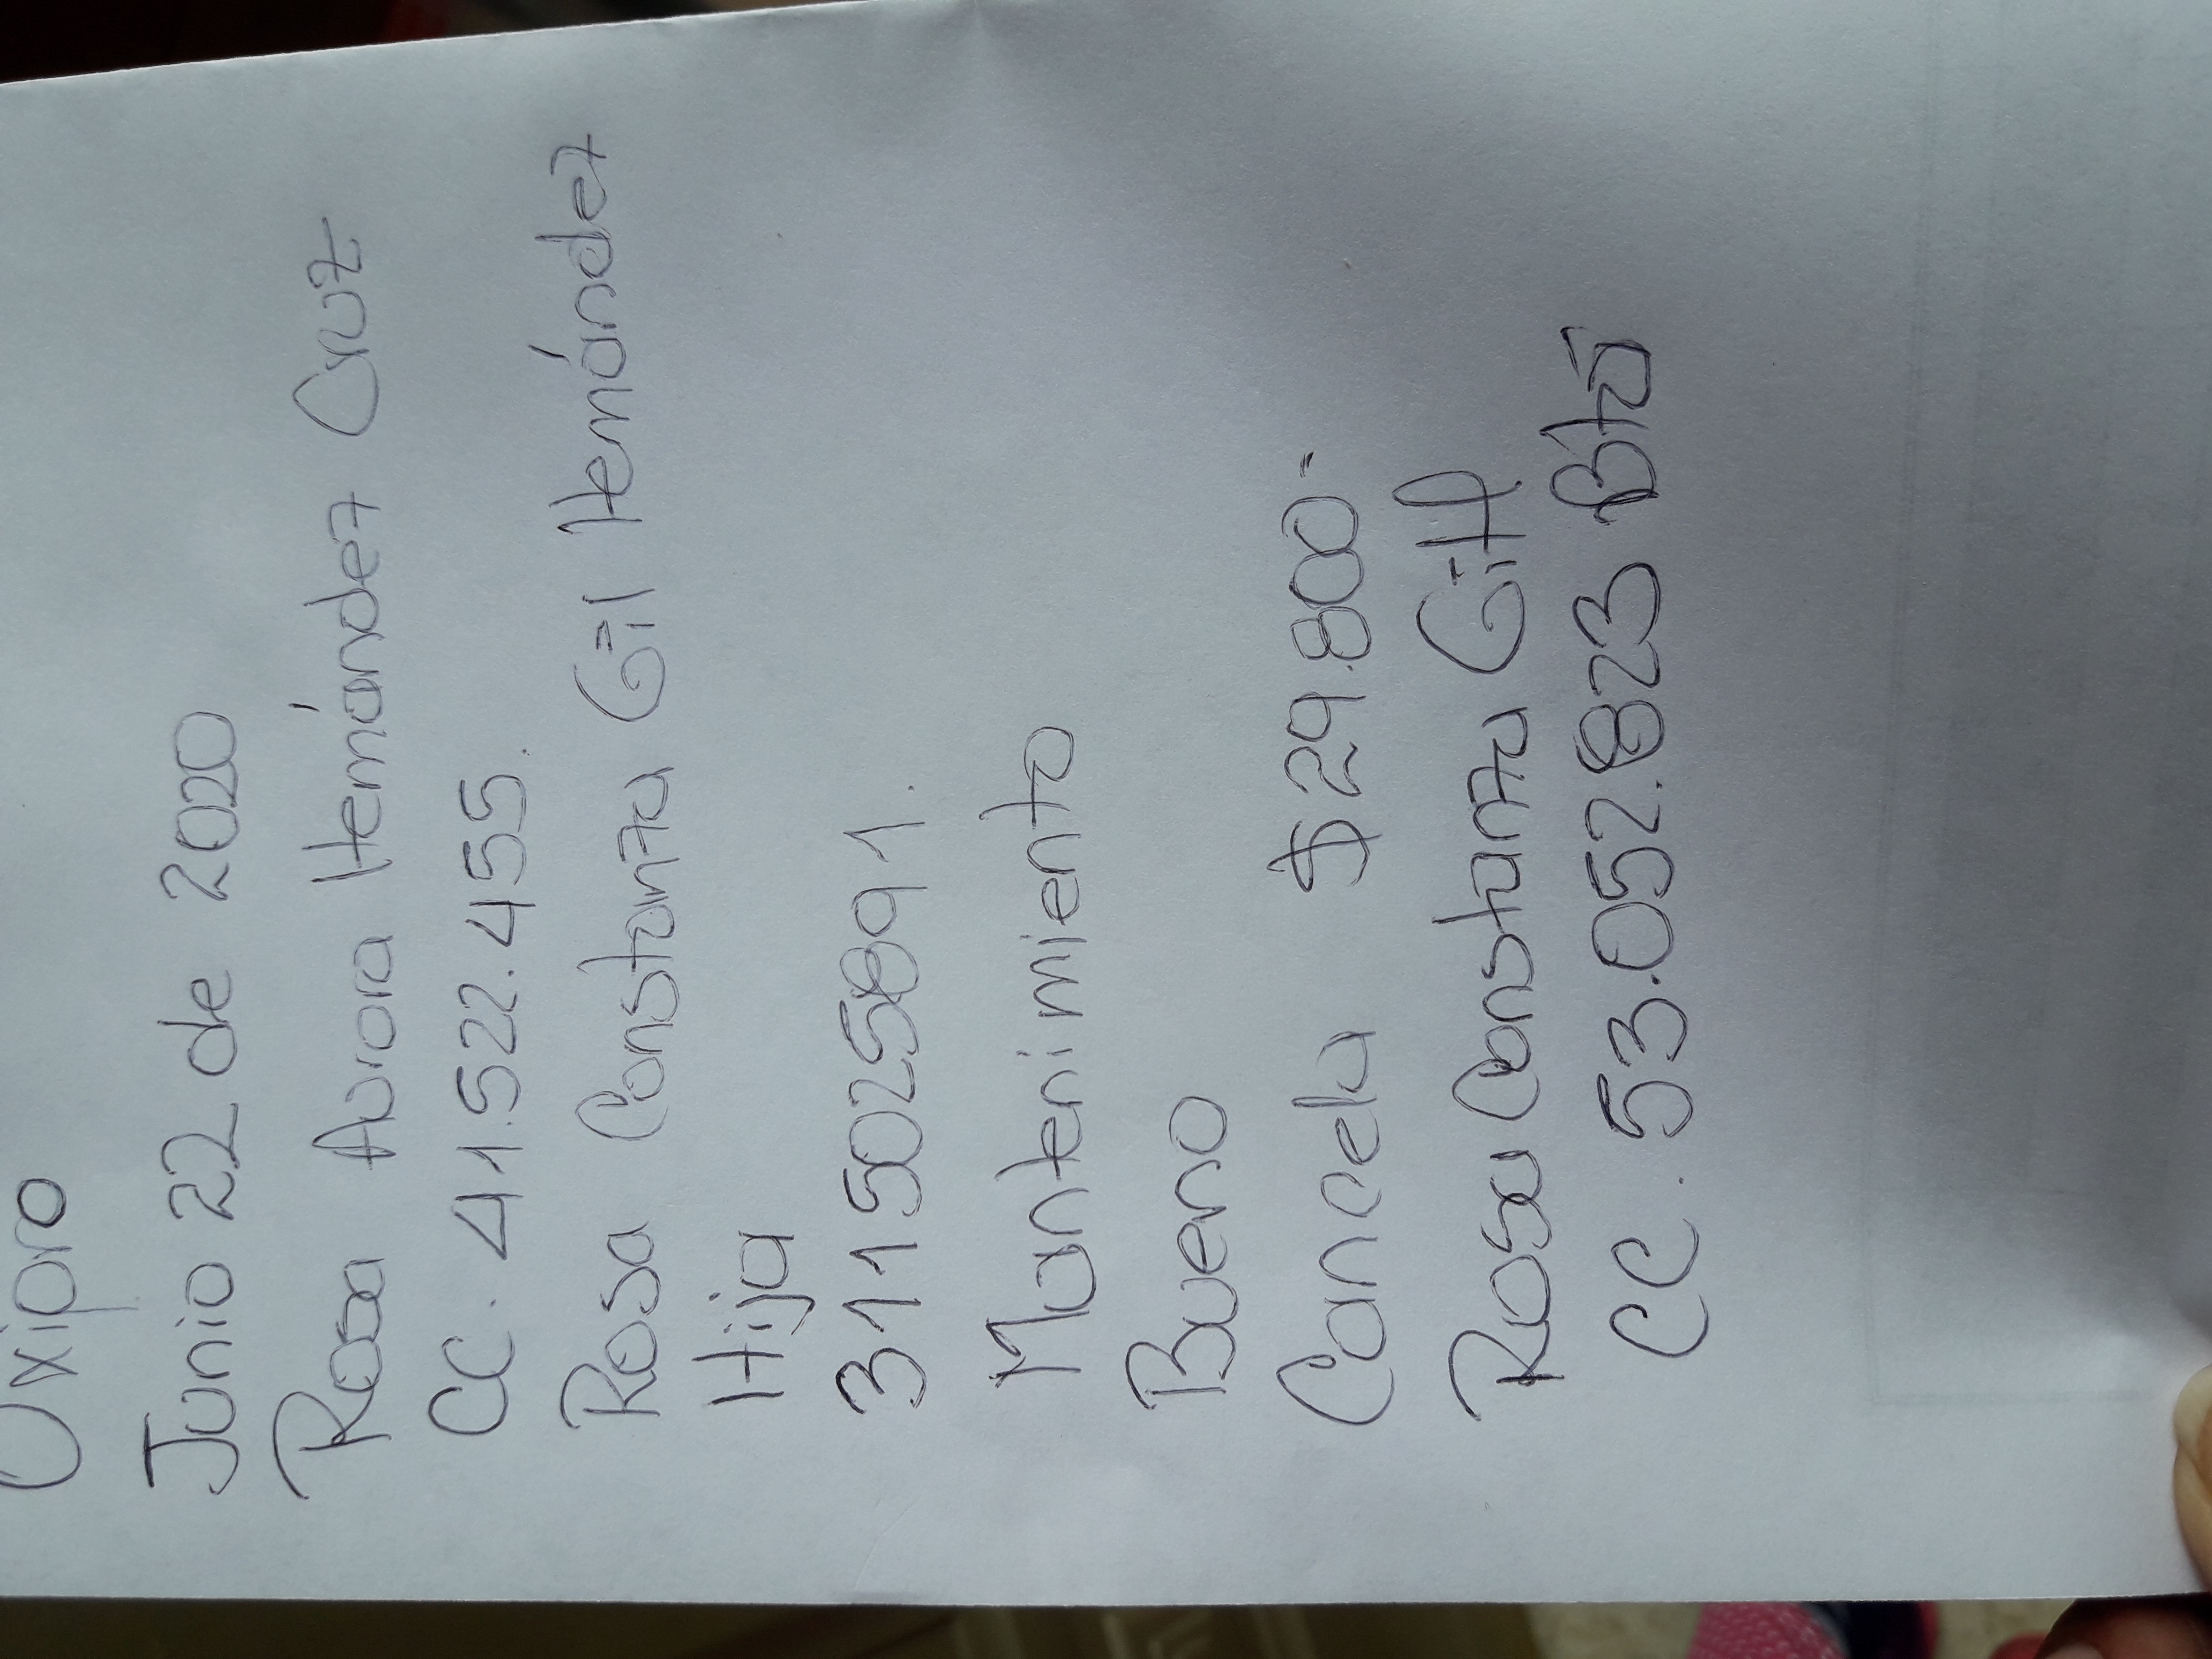 Oxipro
Junio 22 de 2020
Rosa Aurora Hernández Cruz
CC. 41.522.455.
Rosa Constanza Gil Hernández
Hija
3115025891.
Mantenimiento
Bueno
Cancela $29.800=
Rosa Constanza Gil H
CC. 53.052.823 Btá